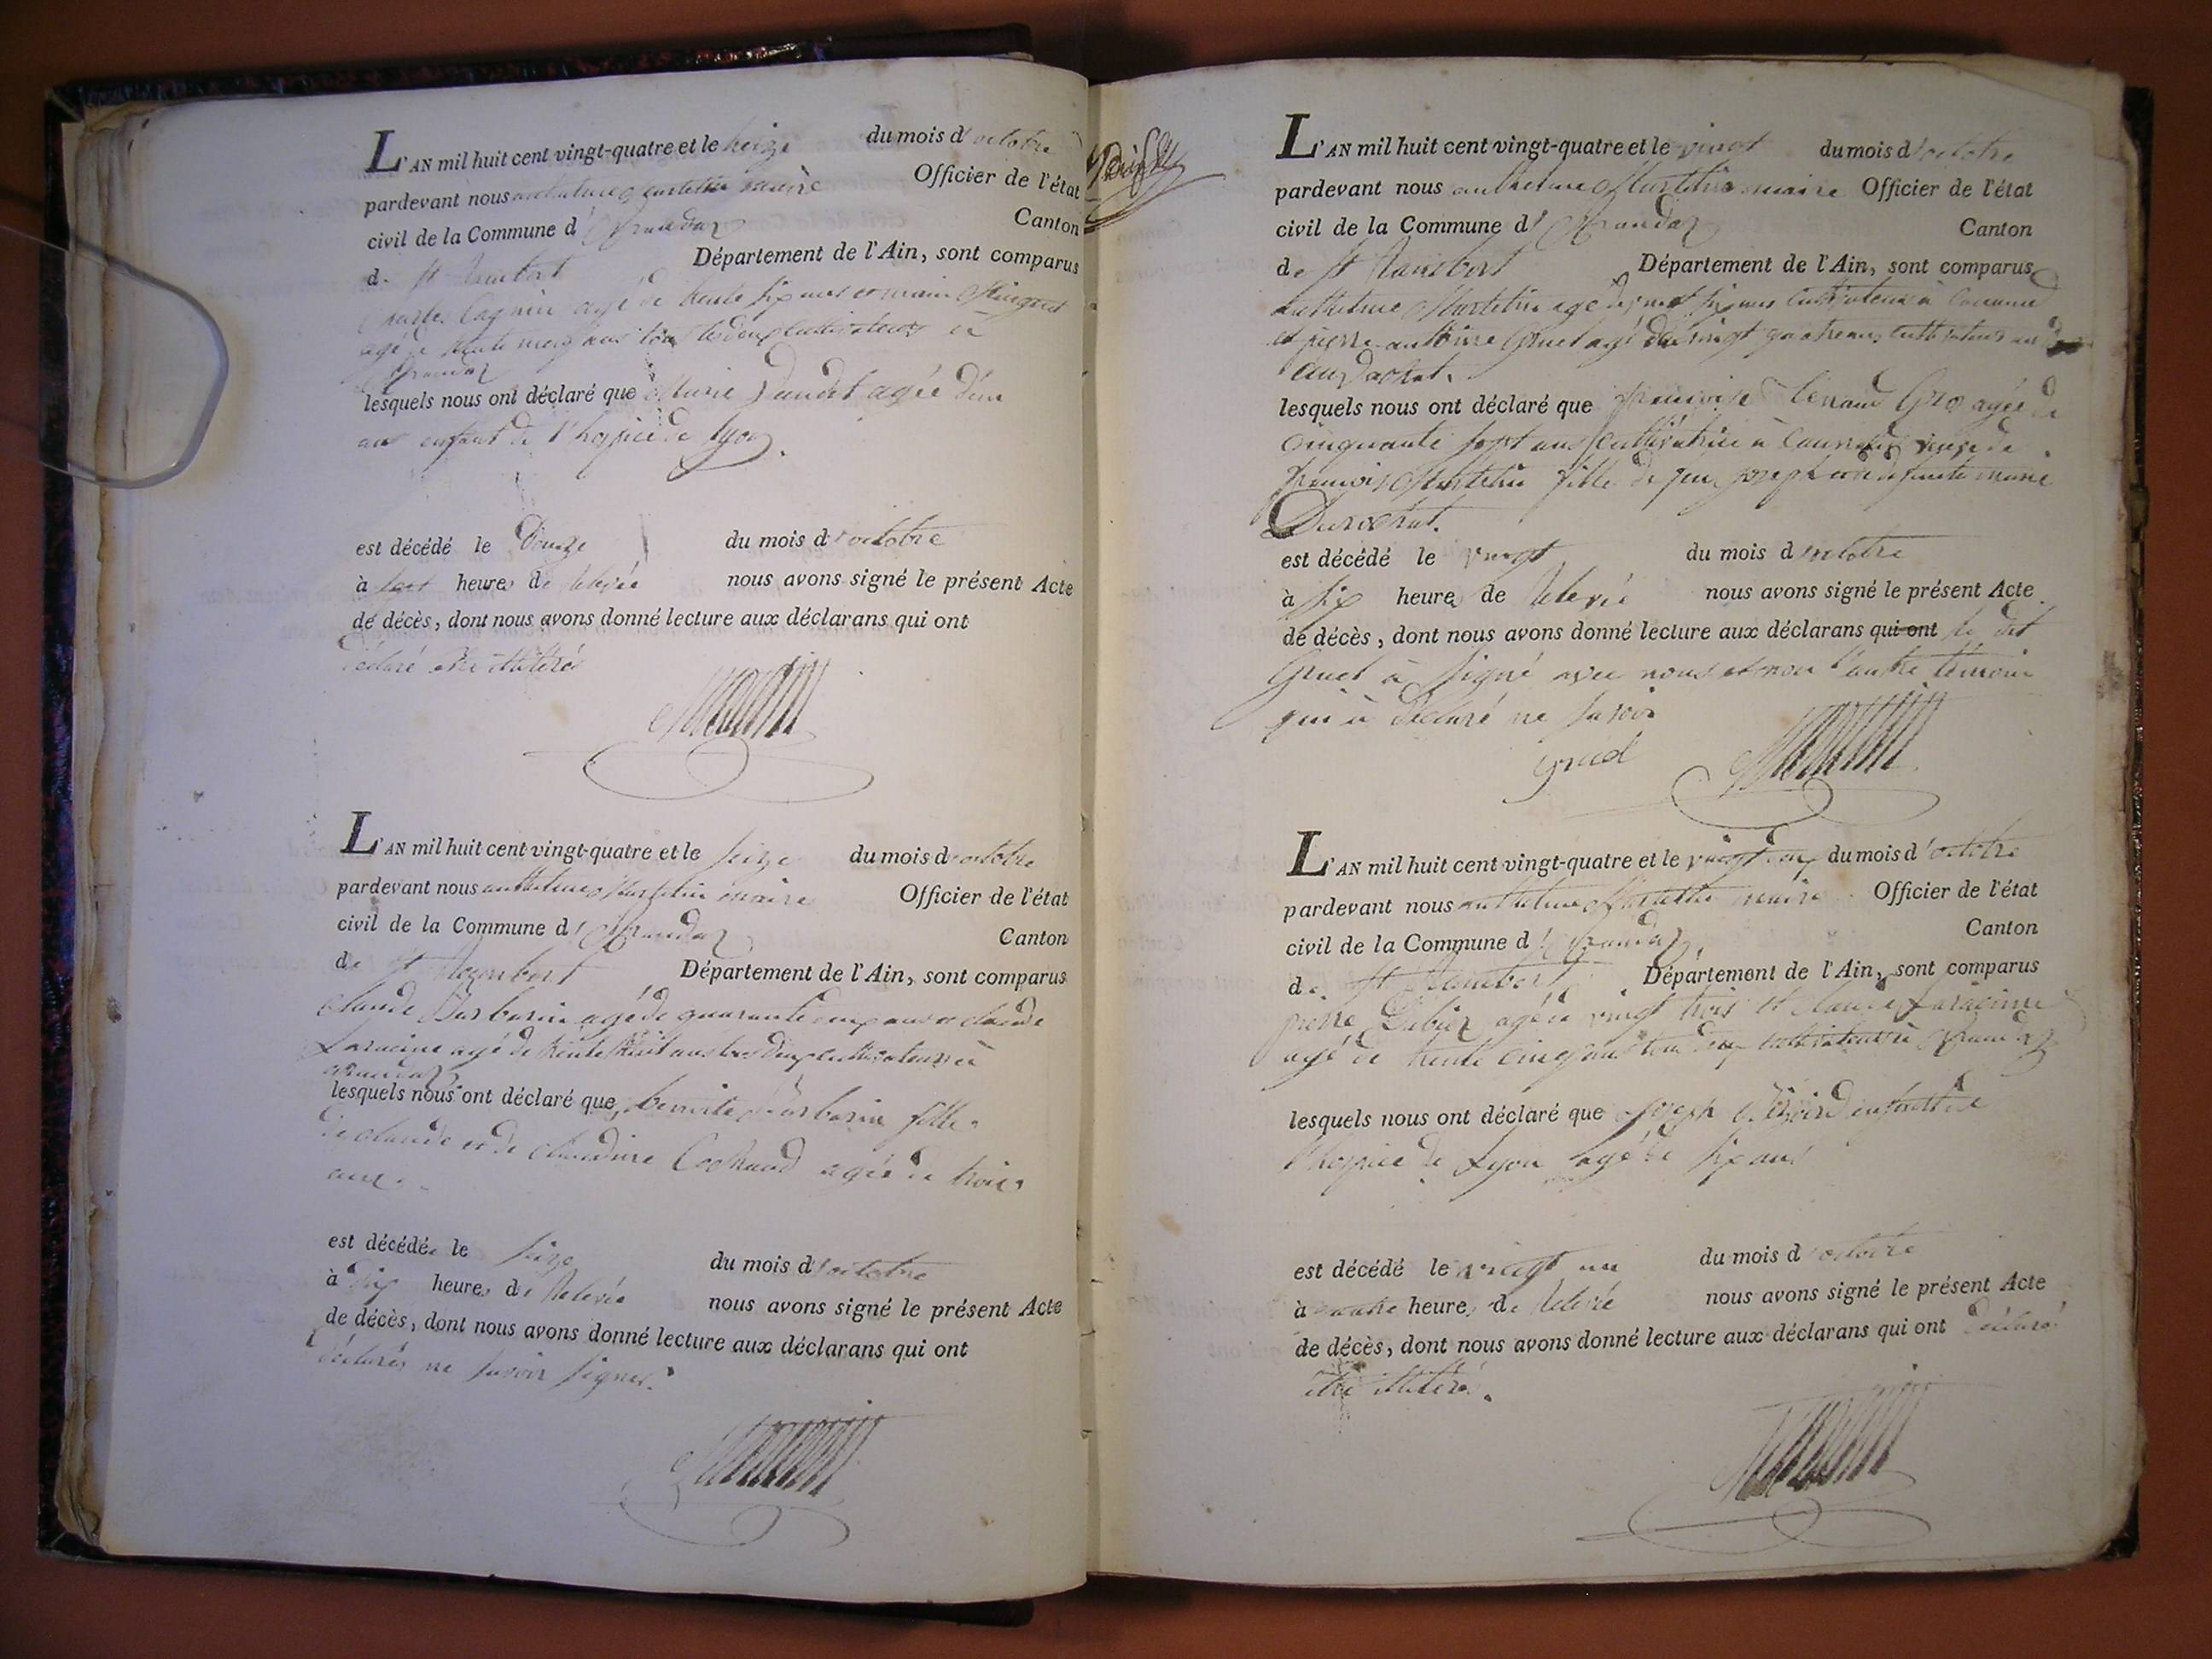 L'AN mil huit cent vingt-quatre et le treize du mois d'octobre
pardevant nous anthelme Martelin maire Officier de l'état
civil de la Commune d'Arandaz Canton
de St Rambert Département de l'Ain, sont comparus
Charles Cagnin agé de trente six ans et
agé de trente ans tous les deux cultivateurs à
Arandaz
lesquels nous ont déclaré que Marie agée d'un
ans enfant de l'hospice de Lyon.
est décédé le douze du mois d'octobre
à sept heures de relevée nous avons signé le présent Acte
de décès, dont nous avons donné lecture aux déclarans qui ont
déclaré être illitérés
L'AN mil huit cent vingt-quatre et le seize du mois d'octobre
pardevant nous anthelme Martelin maire Officier de l'état
civil de la Commune d'Arandaz Canton
de St Rambert Département de l'Ain, sont comparus
claude Barbarin agé de quarante deux ans et claude
Laracine agé de trente huit ans tous deux cultivateurs à
arandaz
lesquels nous ont déclaré que benoite Barbarin fille
de claude et de claudine agée de trois
ans.
est décédée le seize du mois d'octobre
à dix heures de relevée nous avons signé le présent Acte
de décès, dont nous avons donné lecture aux déclarans qui ont
déclarés ne savoir signer.
L'AN mil huit cent vingt-quatre et le vingt du mois d'octobre
pardevant nous anthelme Martelin maire Officier de l'état
civil de la Commune d'Arandaz Canton
de St Rambert Département de l'Ain, sont comparus
anthelme Martelin agé de vingt six ans cultivateur à
et pierre antoine Gruel agé de vingt quatre ans cultivateur au
lesquels nous ont déclaré que françoise Gros agée de
cinquante sept ans cultivatrice à veuve de
françois Martelin fille de feu joseph et de défunte marie
est décédé le vingt du mois d'octobre
à six heures de relevée nous avons signé le présent Acte
de décès, dont nous avons donné lecture aux déclarans qui ont le dit
Gruel à signé avec nous et non l'autre témoin
qui à déclaré ne savoir
gruel
L'AN mil huit cent vingt-quatre et le vingt deux du mois d'octobre
pardevant nous anthelme Martelin maire Officier de l'état
civil de la Commune d'Arandaz Canton
de St Rambert Département de l'Ain, sont comparus
pierre agé de vingt trois et claude Laracine
agé de trente cinq ans tous deux cultivateurs à Arandaz
lesquels nous ont déclaré que joseph enfant de
l'hospice de Lyon agé de six ans
est décédé le vingt un du mois d'octobre
à quatre heures de relevée nous avons signé le présent Acte
de décès, dont nous avons donné lecture aux déclarans qui ont déclaré
être illitérés.